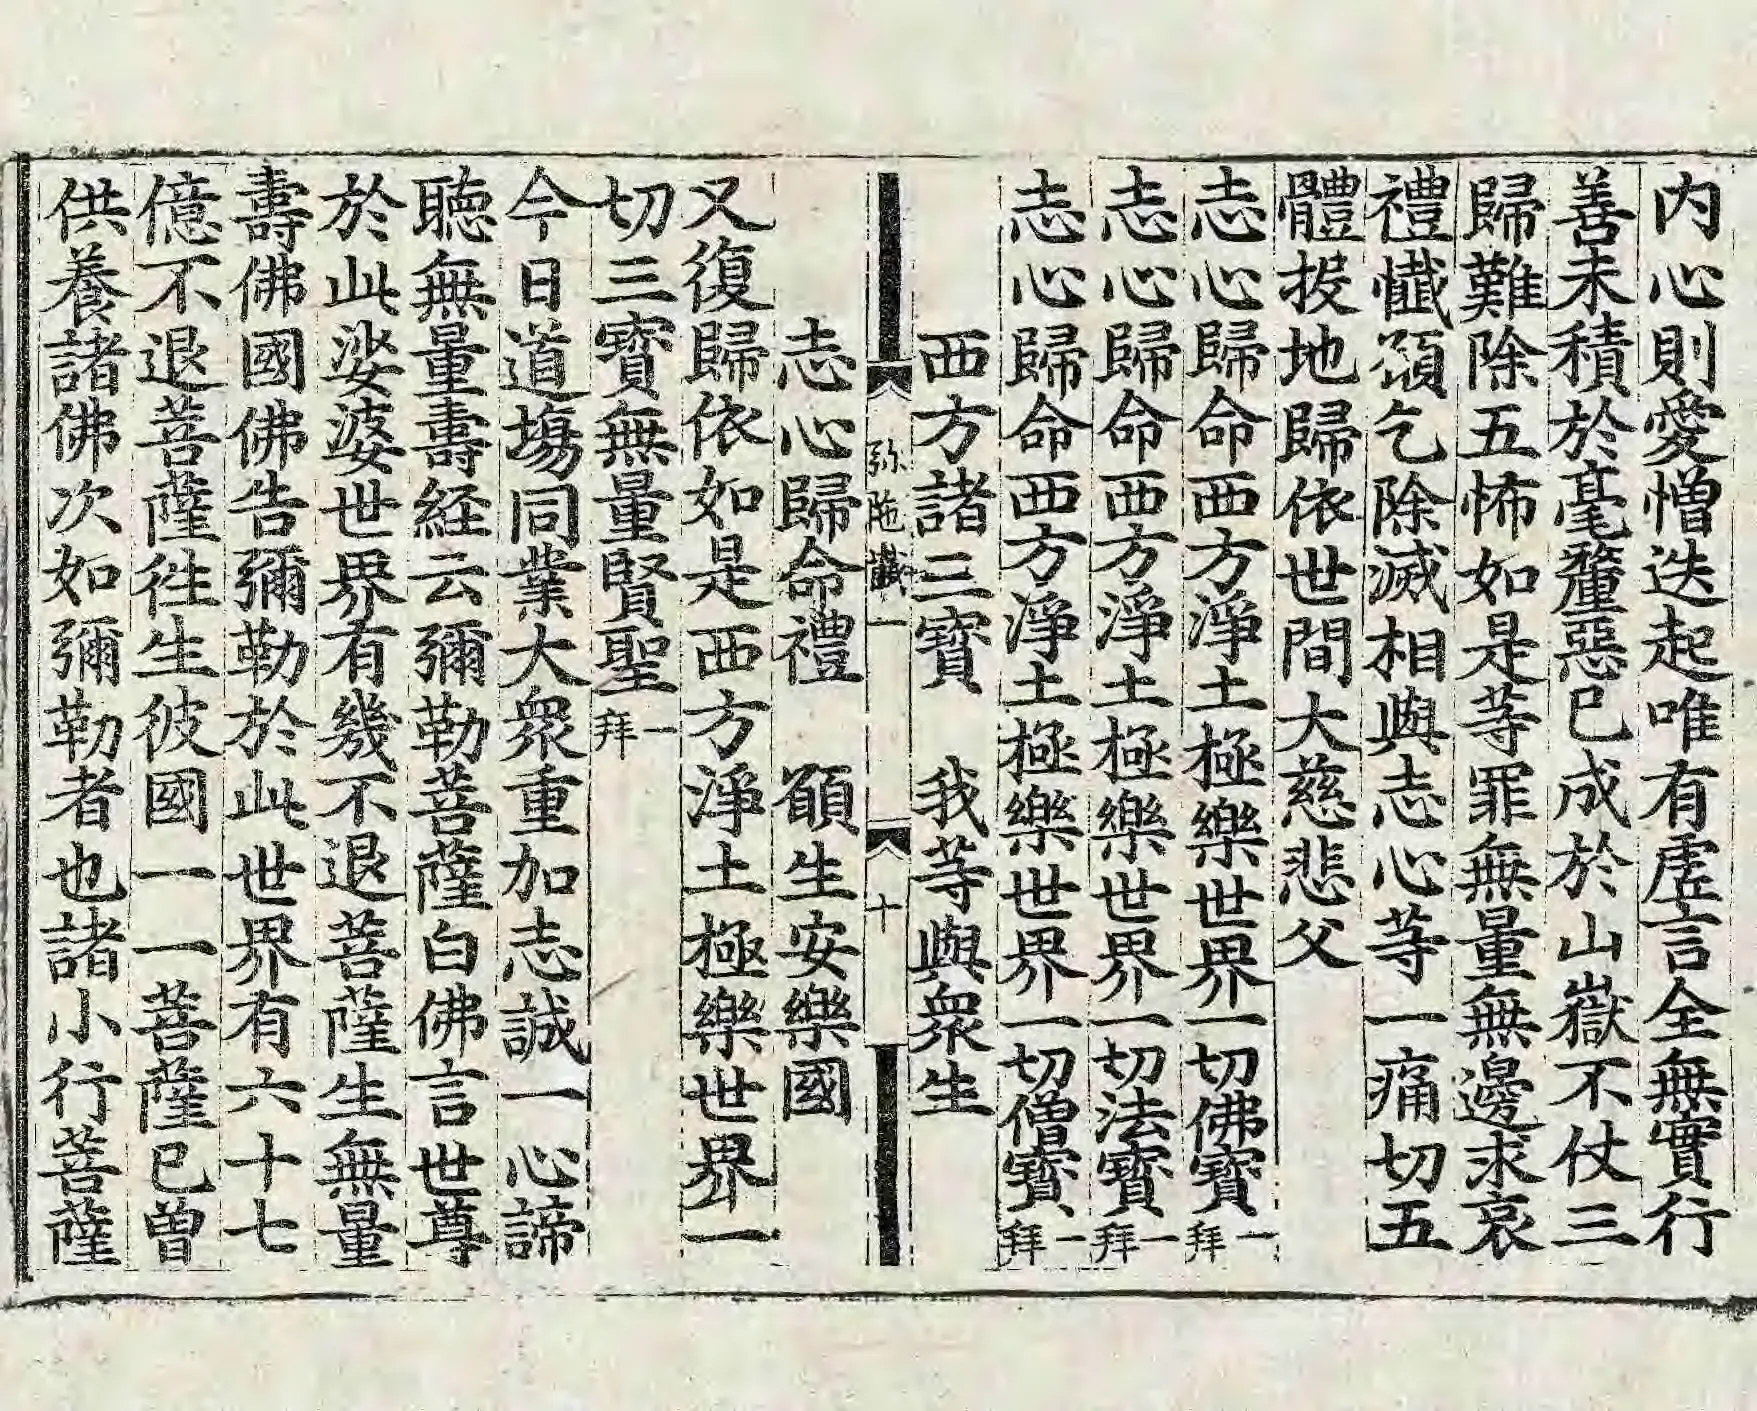 内心則愛憎迭起唯有虗言全無實行
善未積於毫釐惡已成於山嶽不仗三
歸難除五怖如是等罪無量無邊求哀
禮懴頌乞除滅相與志心等一痛切五
體投地歸依世間大慈悲父
志心歸命西方淨土極樂世界一切佛寶一拜
志心歸命西方淨土極樂世界一切法寶一拜
志心歸命西方淨土極樂世界一切僧寶一拜
西方諸三寶　我等與衆生
弥陁懴一　十
志心歸命禮　願生安樂國
又復歸依如是西方淨土極樂世界一
切三寶無量賢聖一拜
今日道塲同業大衆重加志誠一心諦
聽無量壽経云彌勒菩薩白佛言世尊
於此娑婆世界有幾不退菩薩生無量
壽佛國佛告彌勒於此世界有六十七
億不退菩薩徃生彼國一一菩薩已曾
供養諸佛次如彌勒者也諸小行菩薩